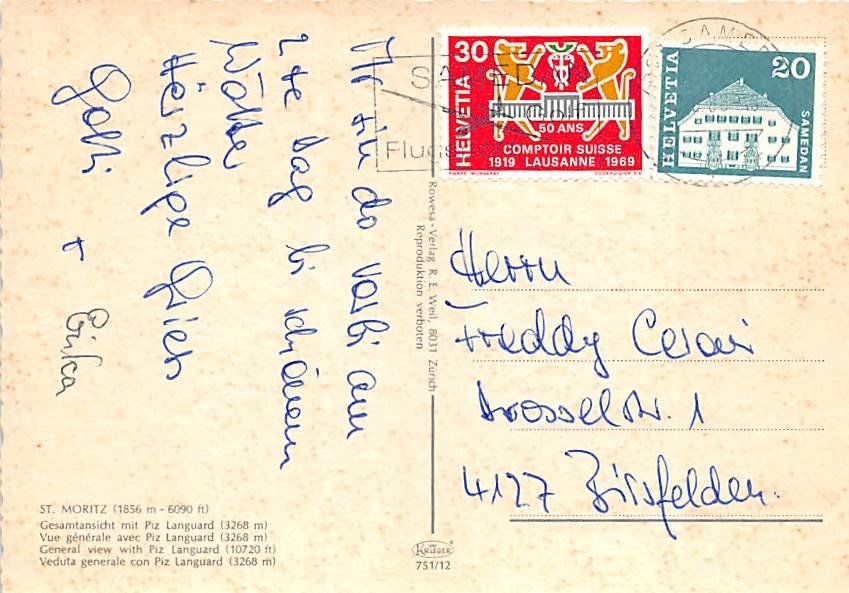 Mr sin do vorbi am
2te Tag bi schönem
Wätter
Härzlige Gries
Golli + Erika
ST. MORITZ (1856 m - 6090 ft)
Gesamtansicht mit Piz Languard (3268 m)
Vue générale avec Piz Languard (3268 m)
General view with Piz Languard (10720 ft)
Veduta generale con Piz Languard (3268 m)
Rowesa-Verlag R. E. Weil, 8031 Zürich
Reproduktion verboten
KRÜGER
751/12
30
HELVETIA
50 ANS
COMPTOIR SUISSE
1919 LAUSANNE 1969
20
HELVETIA
SAMEDAN
SAMEDAN
Herrn
Freddy
Drosselstr. 1
4127 Birsfelden.